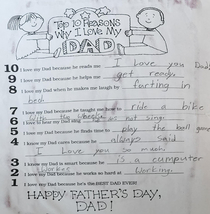 Top 10 Reasons
Why I Love My
DAD
10 I love my Dad because he reads me I love you Dad
9 I love my Dad because he helps me get ready
8 I love my Dad when he makes me laugh by farting in
bed
7 I love my Dad because he taught me how to ride a bike
with the wheels not
6 I love my Dad because
5 I love my Dad because he finds time to play the ball game
4 My Dad always said
Love you so much
3 I know my Dad is smart because he is a cumputer
Worker
2 I love my Dad because he works so hard at Working
1 I love my Dad because he's the BEST DAD EVER!
HAPPY FATHER'S DAY,
DAD!